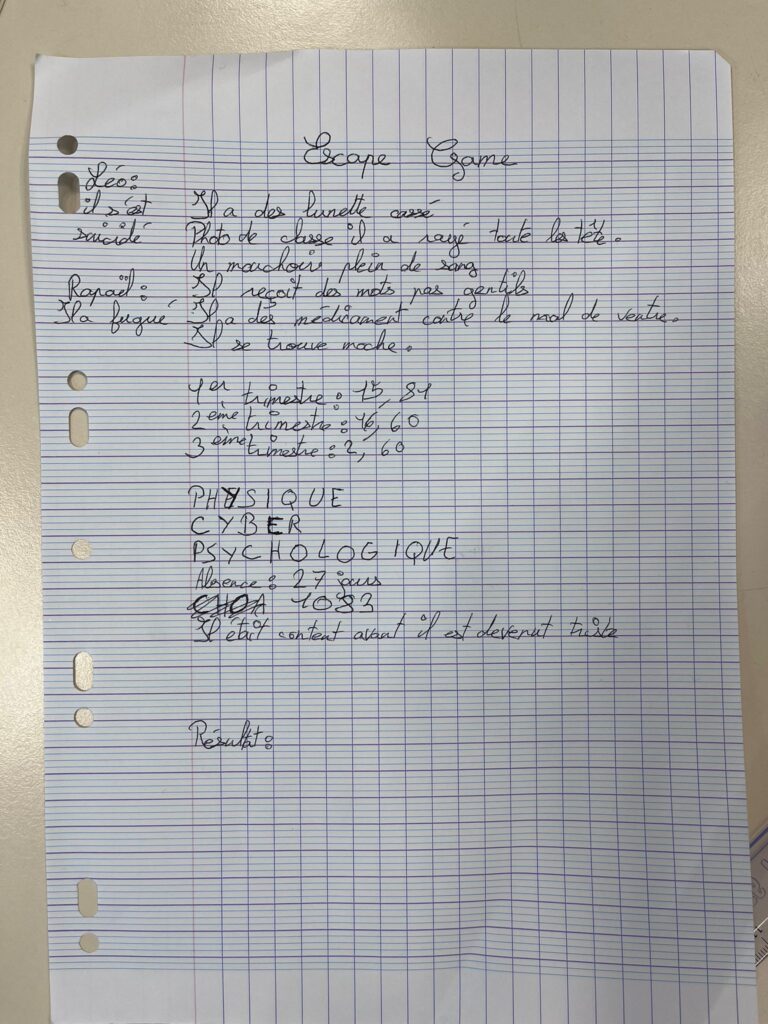 Escape Game
Léo:
il s'est
suicidé
Il a des lunette cassé
Photo de classe il a rayé toute les tête.
Un mouchoir plein de sang
Rapaël:
Il a fugué
Il reçoit des mots pas gentils
Il a des médicament contre le mal de ventre.
Il se trouve moche.
1er trimestre : 15,81
2ème trimestre : 16,60
3ème trimestre : 2,60
PHYSIQUE
CYBER
PSYCHOLOGIQUE
Absence : 27 jours
1083
Il était content avant il est devenut triste
Résultat :